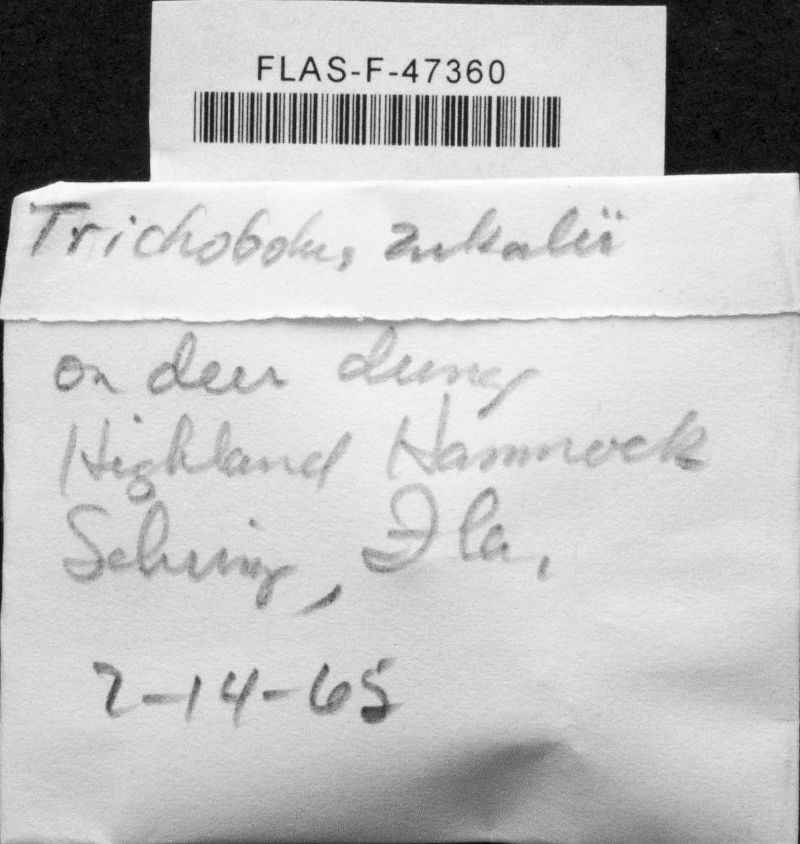 FLAS-F-47360
Trichobolus zukalii
on deer dung
Highland Hammock
Sebring, Fla.
2-14-65